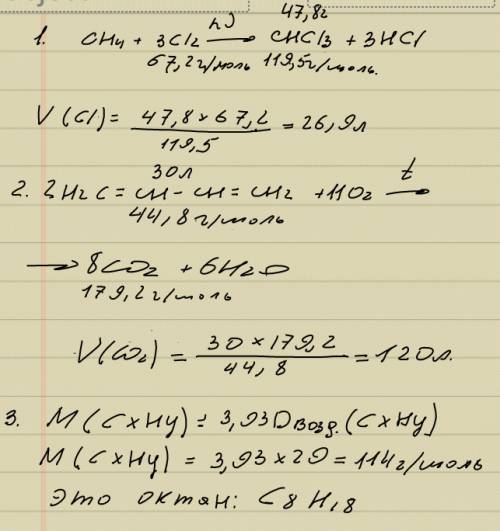 47,8г
1. CH4 + 3Cl2 hν→ CHCl3 + 3HCl
67,2г/моль 119,5г/моль.
V(Cl) = 47,8 × 67,2 / 119,5 = 26,9л
30л
2. 2H2C = CH - CH = CH2 + 11O2 t→
44,8г/моль
→ 8CO2 + 6H2O
179,2г/моль
V(CO2) = 30 × 179,2 / 44,8 = 120л.
3. M(CxHy) = 3,93Dвозд.(CxHy)
M(CxHy) = 3,93 × 29 = 114г/моль
Это октан: C8H18